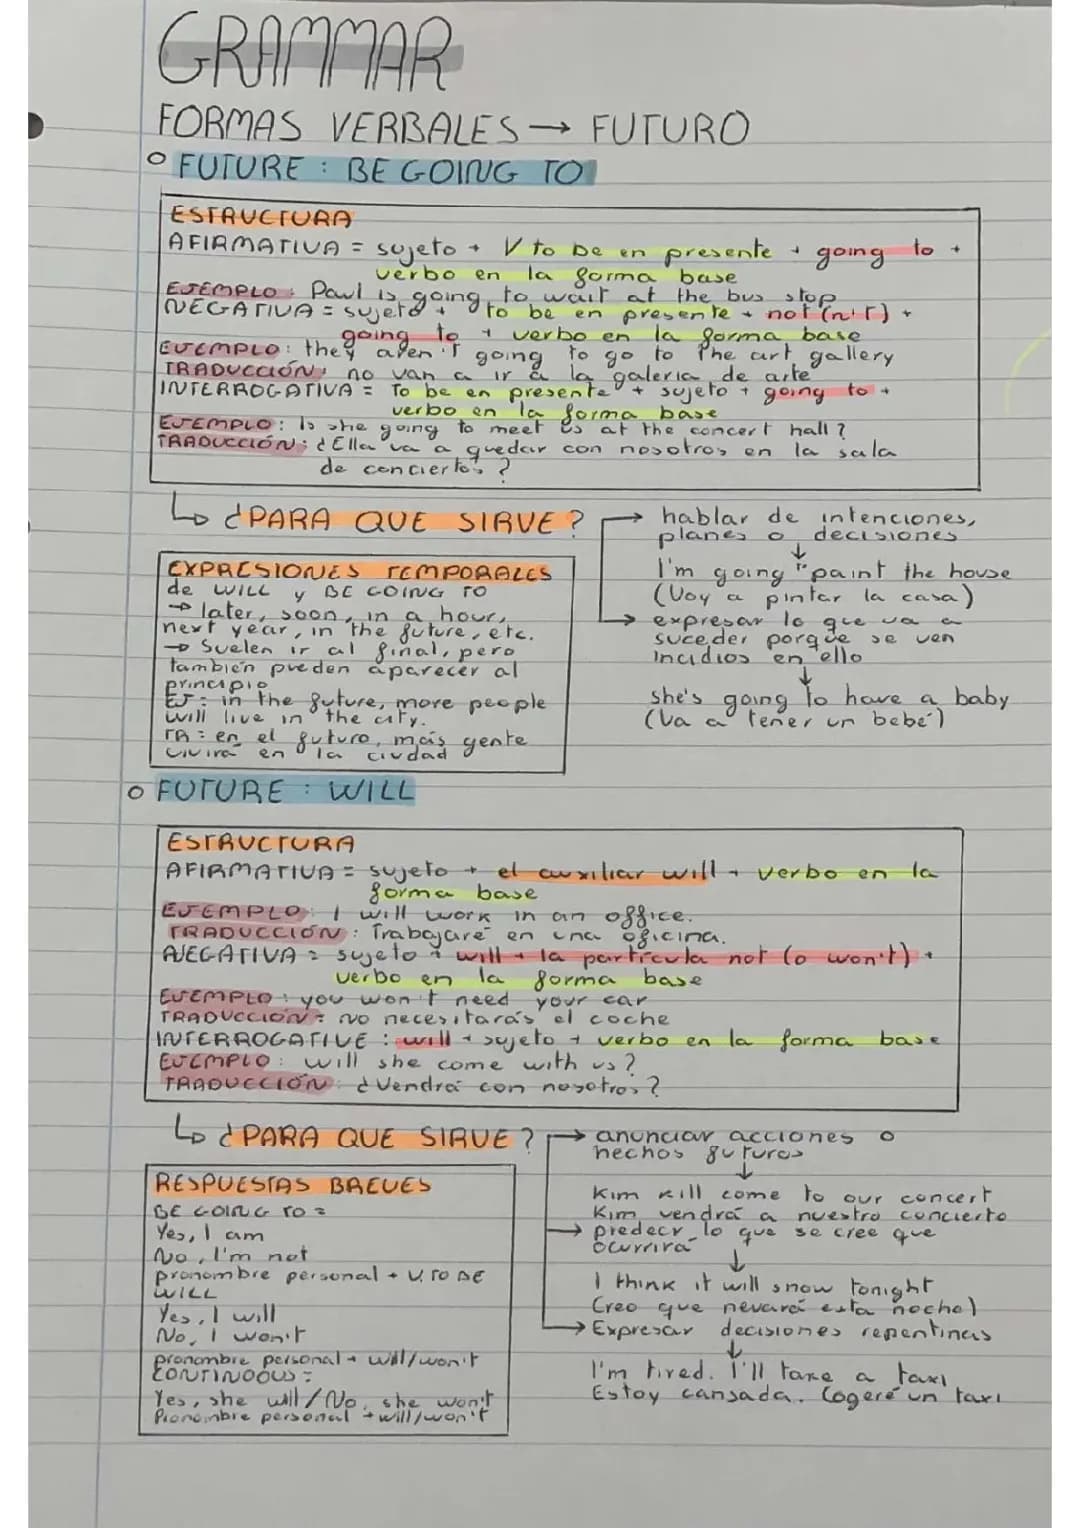 GRAMMAR
FORMAS VERBALES → FUTURO
FUTURE : BE GOING TO
ESTRUCTURA
AFIRMATIVA = sujeto + V to be en presente + going to +
verbo en la forma base
EJEMPLO : Paul is going to wait at the bus stop
NEGATIVA = sujeto + to be en presente + not (n't) +
going to + verbo en la forma base
EJEMPLO : they aren't going to go to the art gallery
TRADUCCIÓN : no van a ir a la galeria de arte
INTERROGATIVA = To be en presente + sujeto + going to +
verbo en la forma base
EJEMPLO : Is she going to meet us at the concert hall ?
TRADUCCIÓN : ¿Ella va a quedar con nosotros en la sala
de conciertos ?
¿PARA QUE SIRVE ?
→ hablar de intenciones,
planes o decisiones
I'm going to paint the house
(Voy a pintar la casa)
→ expresar lo que va a
suceder porque se ven
incidios en ello
she's going to have a baby
(Va a tener un bebé)
EXPRESIONES TEMPORALES
de WILL y BE GOING TO
→ later, soon, in a hour,
next year, in the future, etc.
→ Suelen ir al final, pero
también pueden aparecer al
principio
EJ : in the future, more people
will live in the city.
TR = en el futuro, más gente
vivirá en la ciudad
FUTURE : WILL
ESTRUCTURA
AFIRMATIVA = sujeto + el auxiliar will + verbo en la
forma base
EJEMPLO : I will work in an office.
TRADUCCIÓN : Trabajaré en una oficina.
NEGATIVA = sujeto + will + la partícula not (o won't) +
verbo en la forma base
EJEMPLO : you won't need your car
TRADUCCIÓN : No necesitarás el coche
INTERROGATIVE : will + sujeto + verbo en la forma base
EJEMPLO : will she come with us ?
TRADUCCIÓN : ¿Vendrá con nosotros ?
¿PARA QUE SIRVE ?
→ anunciar acciones o
hechos futuros
Kim kill come to our concert
Kim vendrá a nuestro concierto
→ predecir lo que se cree que
ocurrirá
I think it will snow tonight
Creo que nevará esta noche)
→ Expresar decisiones repentinas
I'm tired. I'll take a taxi
Estoy cansada. Cogeré un taxi
RESPUESTAS BREVES
BE GOING TO =
Yes, I am
No, I'm not
pronombre personal + V. TO BE
WILL
Yes, I will
No, I won't
pronombre personal + will/won't
CONTINOOUS =
Yes, she will / No, she won't
Pronombre personal + will/won't